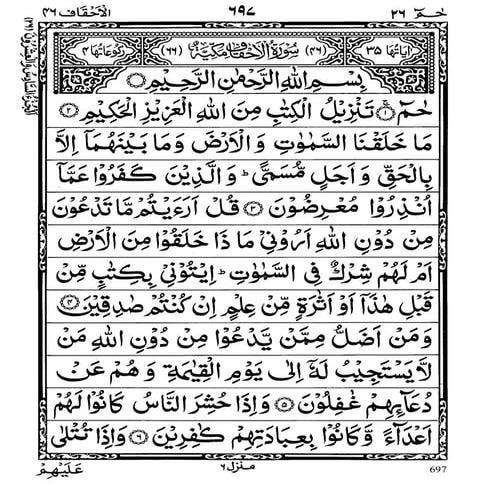 حٰمٓ ٢٦
٦٩٧
الاحقاف ٤٦
اٰیاتها ٣٥
(٤٦) سُوْرَةُ الْاَحْقَافِ مَكِّيَّةٌ (٦٦)
رکوعاتها ٤
بِسْمِ اللّٰهِ الرَّحْمٰنِ الرَّحِيْمِ
حٰمٓ ۚ ﴿١﴾ تَنْزِيْلُ الْكِتٰبِ مِنَ اللّٰهِ الْعَزِيْزِ الْحَكِيْمِ ﴿٢﴾
مَا خَلَقْنَا السَّمٰوٰتِ وَ الْاَرْضَ وَمَا بَيْنَهُمَاۤ اِلَّا
بِالْحَقِّ وَ اَجَلٍ مُّسَمًّى ؕ وَ الَّذِيْنَ كَفَرُوْا عَمَّاۤ
اُنْذِرُوْا مُعْرِضُوْنَ ﴿٣﴾ قُلْ اَرَءَيْتُمْ مَّا تَدْعُوْنَ
مِنْ دُوْنِ اللّٰهِ اَرُوْنِيْ مَا ذَا خَلَقُوْا مِنَ الْاَرْضِ
اَمْ لَهُمْ شِرْكٌ فِي السَّمٰوٰتِ ؕ اِيْتُوْنِيْ بِكِتٰبٍ مِّنْ
قَبْلِ هٰذَاۤ اَوْ اَثٰرَةٍ مِّنْ عِلْمٍ اِنْ كُنْتُمْ صٰدِقِيْنَ ﴿٤﴾
وَمَنْ اَضَلُّ مِمَّنْ يَّدْعُوْا مِنْ دُوْنِ اللّٰهِ مَنْ
لَّا يَسْتَجِيْبُ لَهٗۤ اِلٰى يَوْمِ الْقِيٰمَةِ وَ هُمْ عَنْ
دُعَآئِهِمْ غٰفِلُوْنَ ﴿٥﴾ وَاِذَا حُشِرَ النَّاسُ كَانُوْا لَهُمْ
اَعْدَآءً وَّ كَانُوْا بِعِبَادَتِهِمْ كٰفِرِيْنَ ﴿٦﴾ وَاِذَا تُتْلٰى
عَلَيْهِمْ
منزل ٦
697